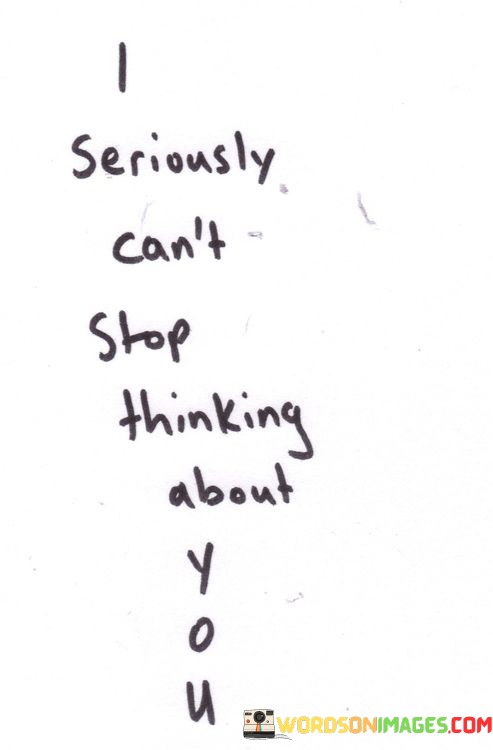 I
Seriously
can't
Stop
thinking
about
y
o
u
WORDSONIMAGES.COM